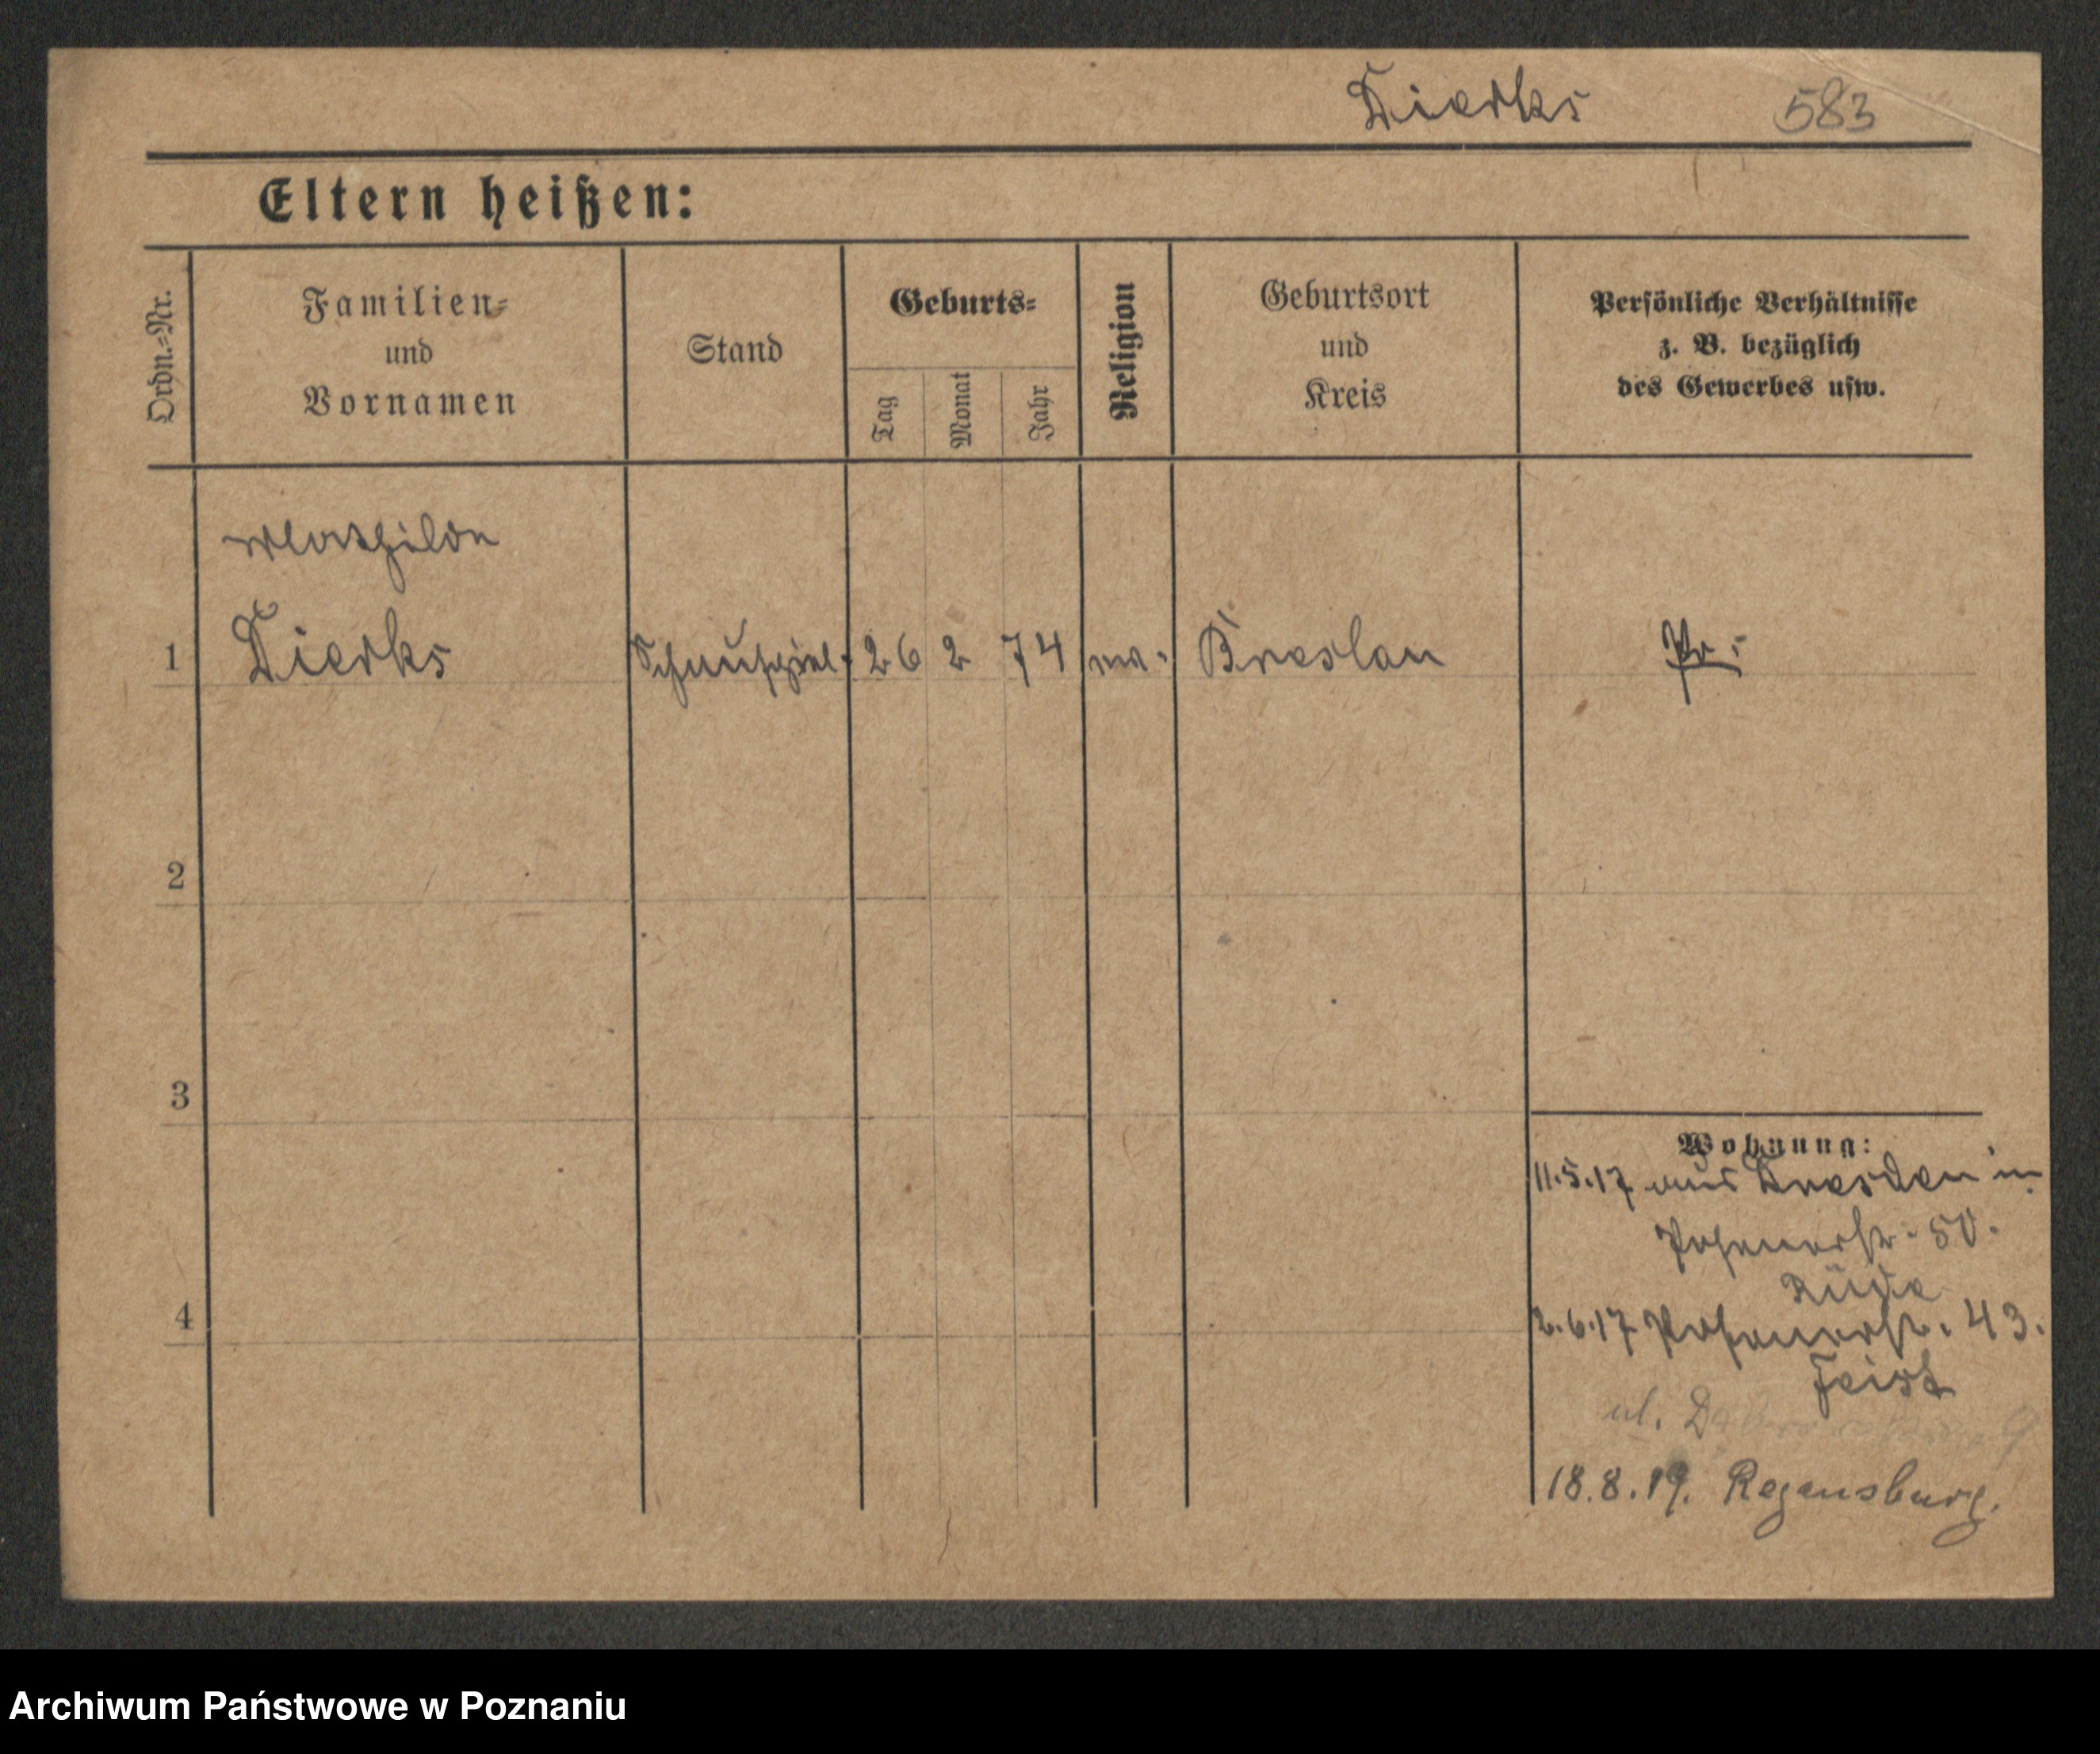 Dierks 583
Eltern heißen:
Ordn.-Nr.
Familien-
und
Vornamen
Stand
Geburts-
Tag
Monat
Jahr
Religion
Geburtsort
und
Kreis
Persönliche Verhältnisse
z. B. bezüglich
des Gewerbes usw.
Mathilde
1 Dierks Schauspiel. 26 2 74 Breslau Pr.
2
3
4
Wohnung:
11.5.17 aus Dresden in
Posenerstr. 50.
2.6.17 Posenerstr. 43.
Feist
ul.
18.8.19. Regensburg.
Archiwum Państwowe w Poznaniu